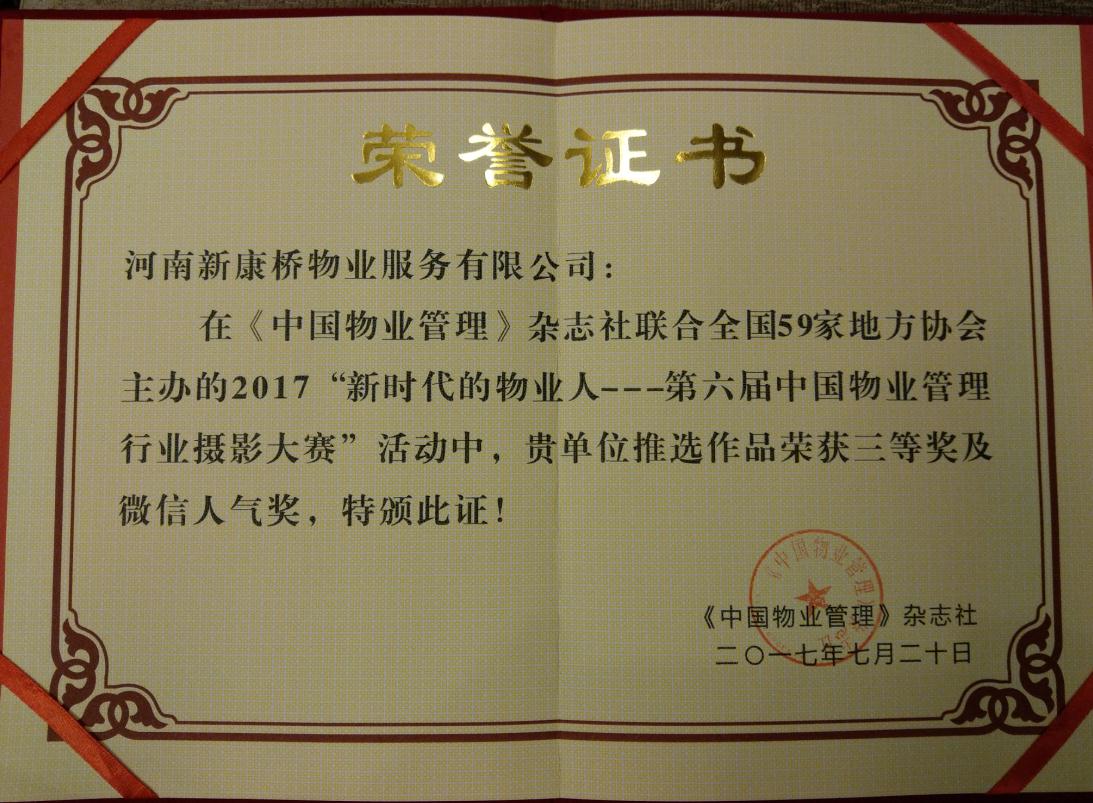 荣誉证书
河南新康桥物业服务有限公司：
在《中国物业管理》杂志社联合全国59家地方协会
主办的2017“新时代的物业人---第六届中国物业管理
行业摄影大赛”活动中，贵单位推选作品荣获三等奖及
微信人气奖，特颁此证！
《中国物业管理》
《中国物业管理》杂志社
二〇一七年七月二十日